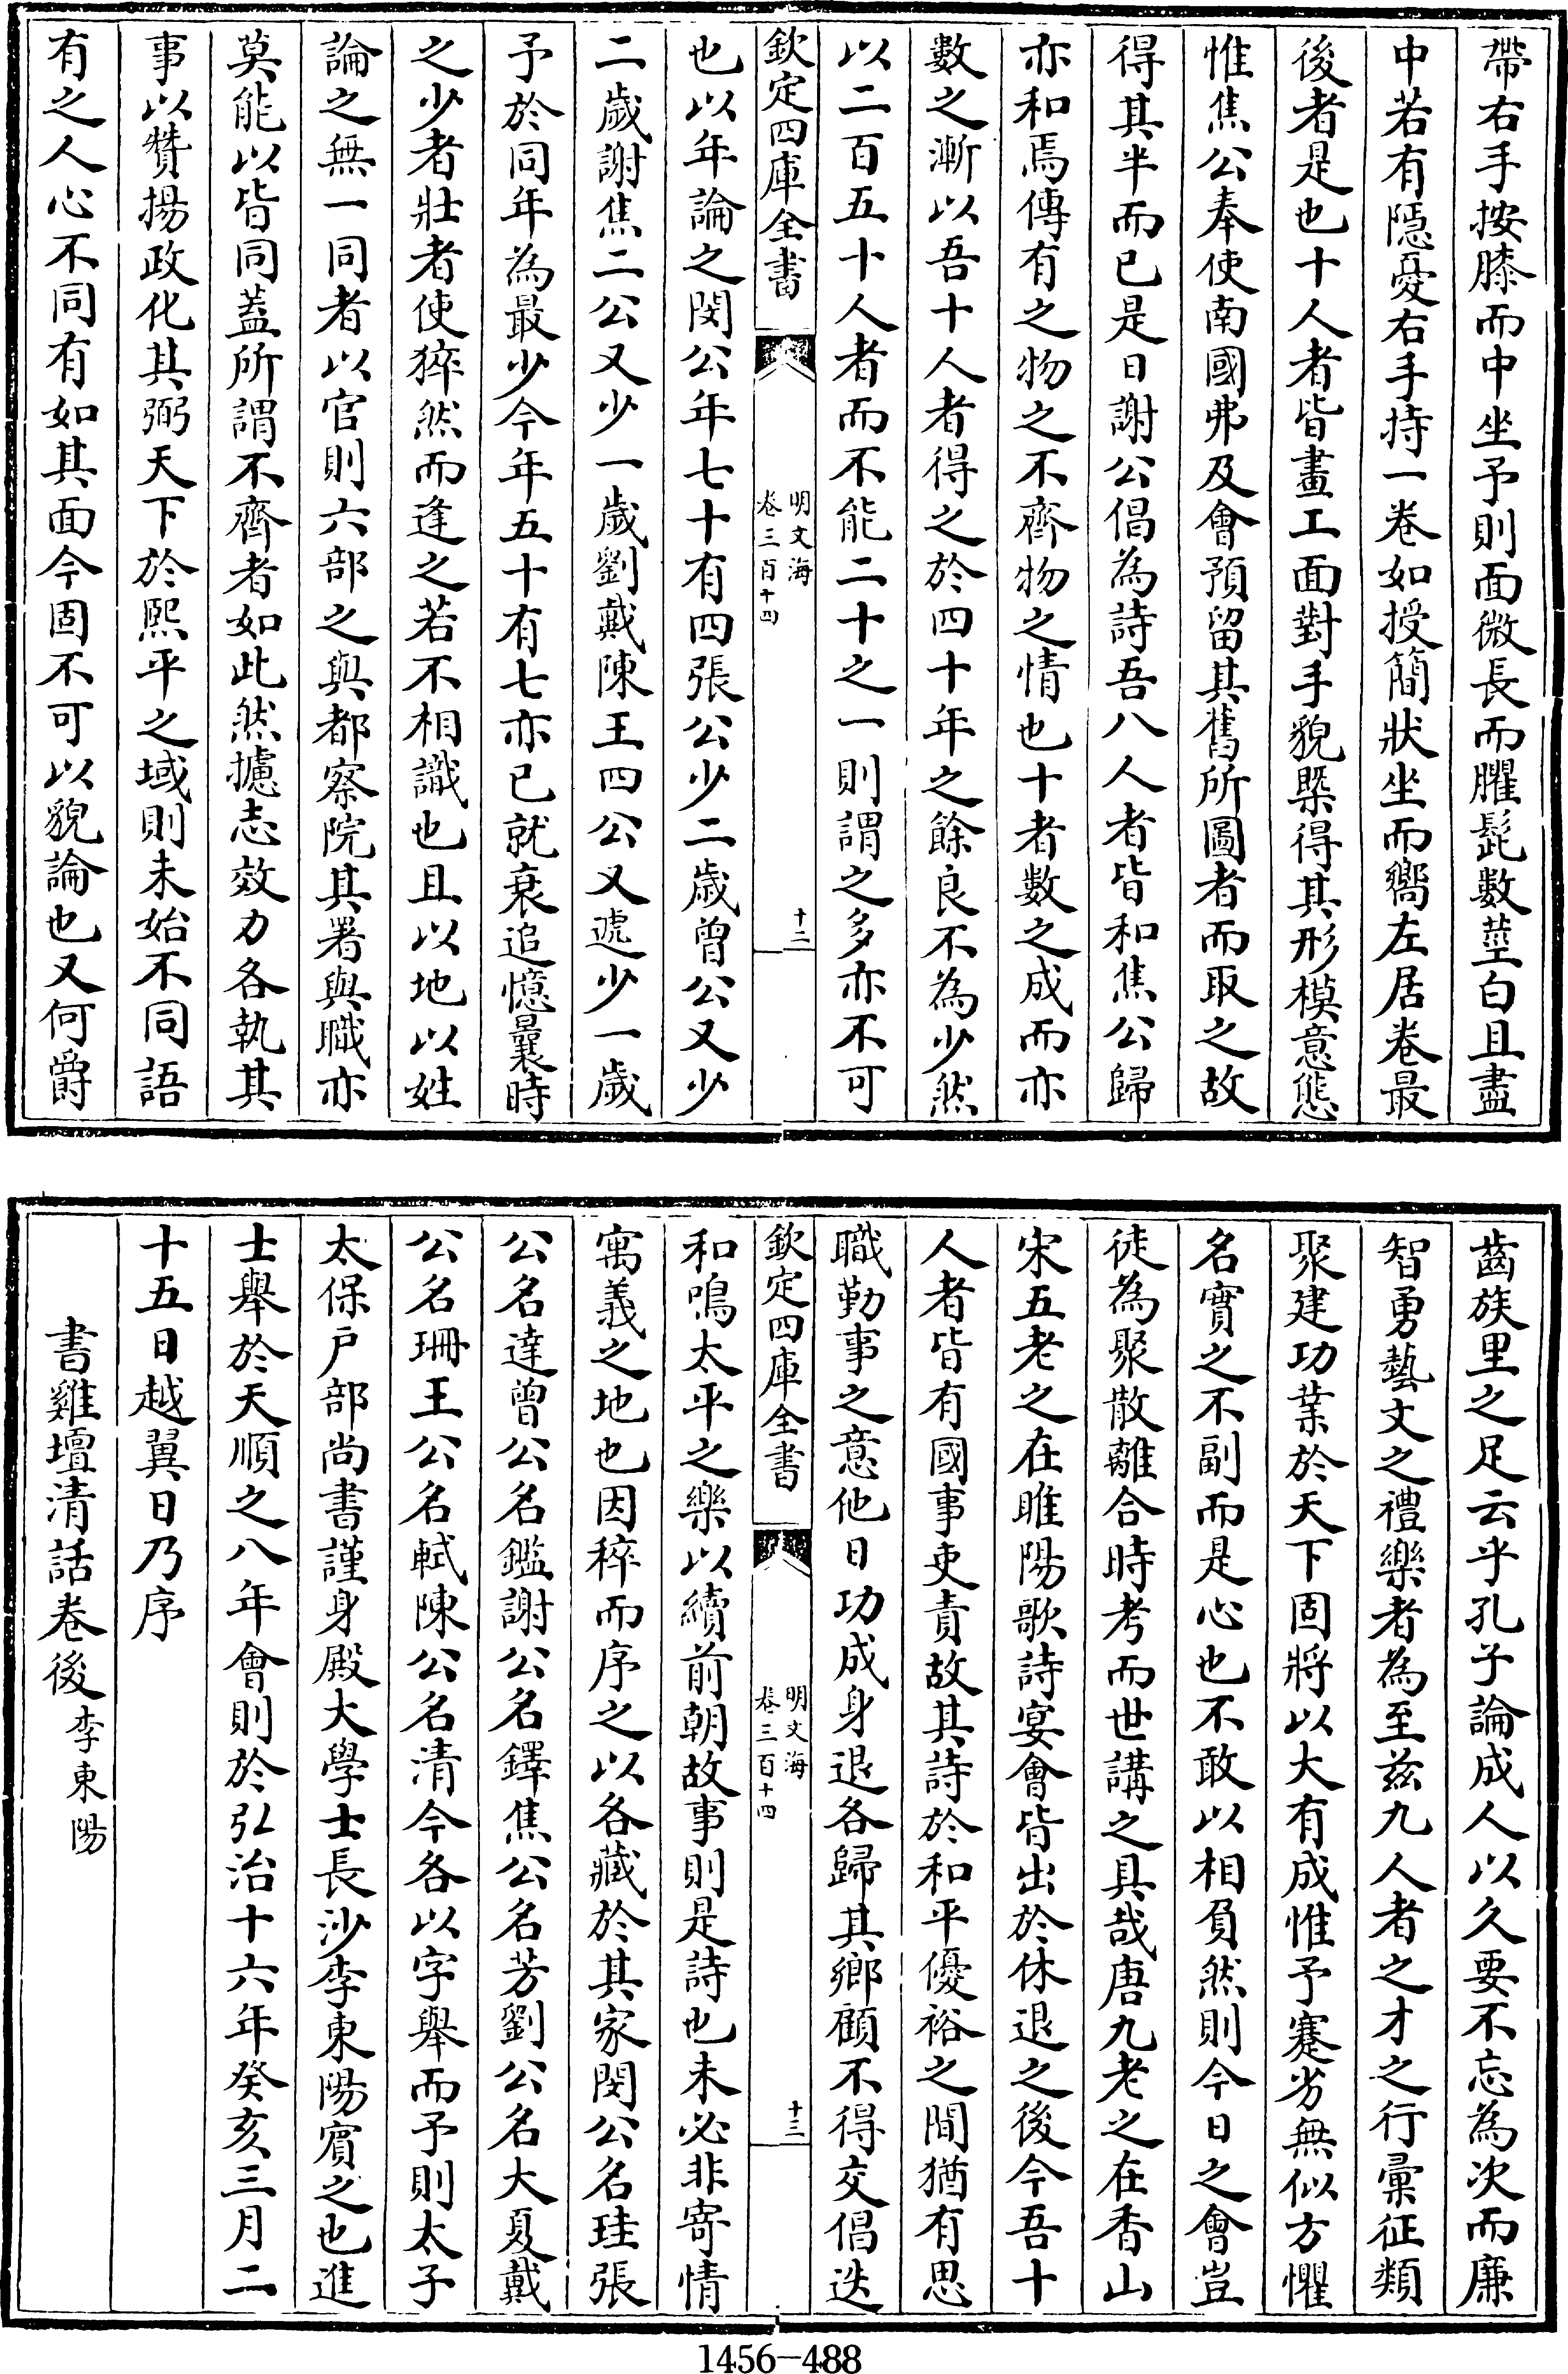 帶右手按膝而中坐予則面微長而臞髭數莖白且盡
中若有隱憂右手持一卷如授簡狀坐而嚮左居卷最
後者是也十人者皆畫工面對手貌槩得其形模意態
惟焦公奉使南國弗及會預留其舊所圖者而取之故
得其半而已是日謝公倡為詩吾八人者皆和焦公歸
亦和焉傳有之物之不齊物之情也十者數之成而亦
數之漸以吾十人者得之於四十年之餘良不為少然
以二百五十人者而不能二十之一則謂之多亦不可
欽定四庫全書
明文海
卷三百十四
十二
也以年論之閔公年七十有四張公少二歲曾公又少
二歲謝焦二公又少一歲劉戴陳王四公又遞少一歲
予於同年為最少今年五十有七亦已就衰追憶曩時
之少者壯者使猝然而逢之若不相識也且以地以姓
論之無一同者以官則六部之與都察院其署與職亦
莫能以皆同蓋所謂不齊者如此然攄志效力各執其
事以贊揚政化其弼天下於熙平之域則未始不同語
有之人心不同有如其面今固不可以貌論也又何爵
齒族里之足云乎孔子論成人以久要不忘為次而廉
智勇藝文之禮樂者為至兹九人者之才之行彚征類
聚建功業於天下固將以大有成惟予蹇劣無似方懼
名實之不副而是心也不敢以相負然則今日之會豈
徒為聚散離合時考而世講之具哉唐九老之在香山
宋五老之在睢陽歌詩宴會皆出於休退之後今吾十
人者皆有國事吏責故其詩於和平優裕之間猶有思
職勤事之意他日功成身退各歸其鄉顧不得交倡迭
欽定四庫全書
明文海
卷三百十四
十三
和鳴太平之樂以續前朝故事則是詩也未必非寄情
寓義之地也因稡而序之以各藏於其家閔公名珪張
公名達曾公名鑑謝公名鐸焦公名芳劉公名大夏戴
公名珊王公名軾陳公名清今各以字舉而予則太子
太保户部尚書謹身殿大學士長沙李東陽賓之也進
士舉於天順之八年會則於弘治十六年癸亥三月二
十五日越翼日乃序
書雞壇清話卷後 李東陽
1456-488